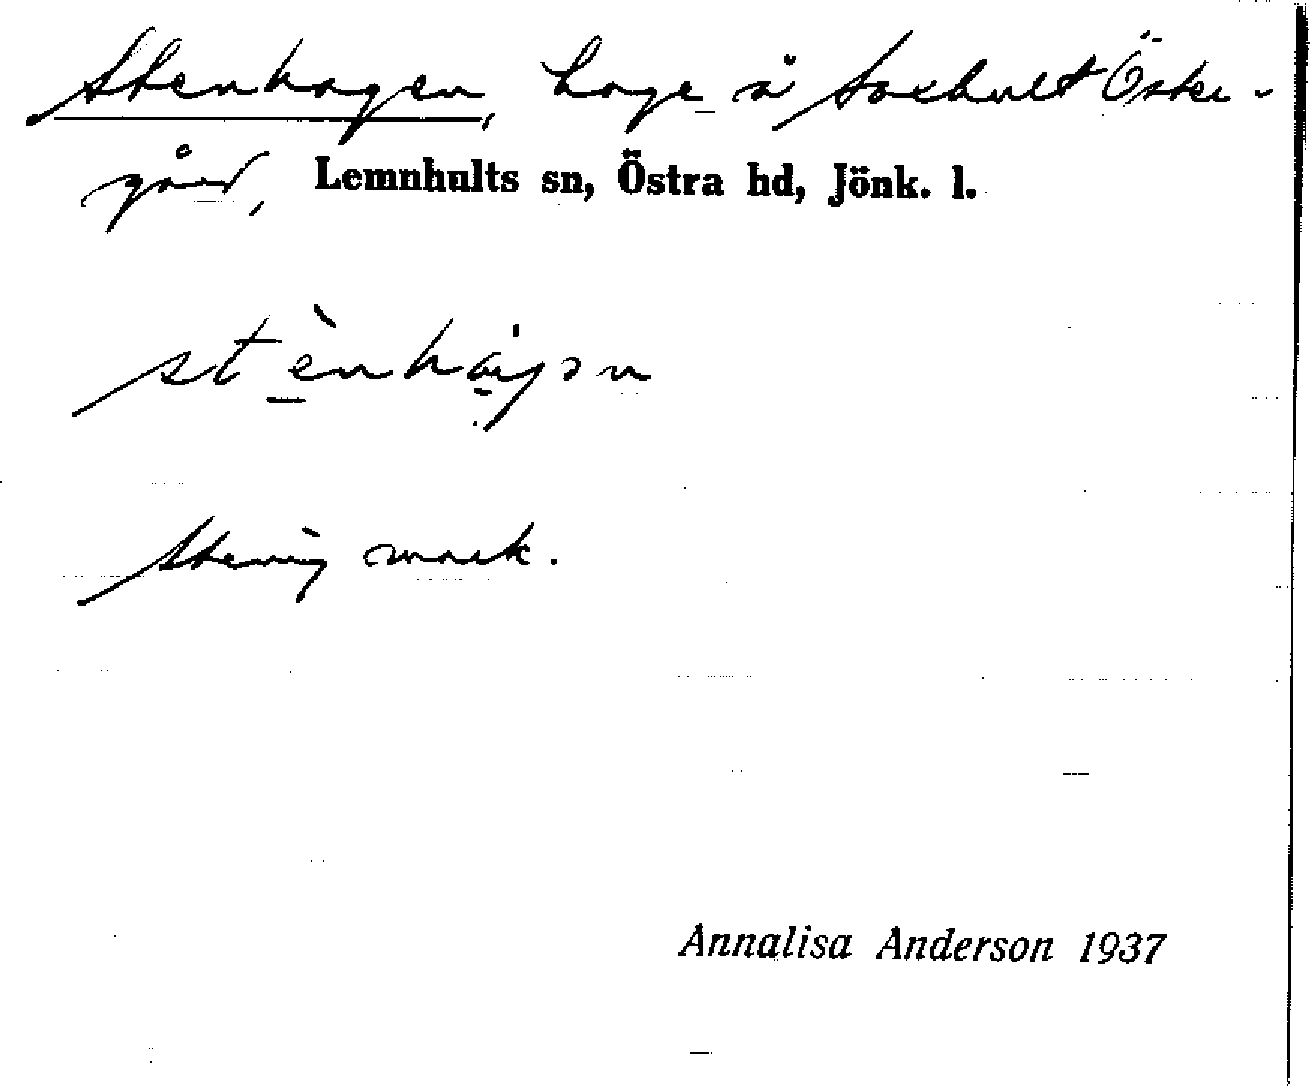 Stenhagen, hage å Saxhult Öster-
gård, Lemnhults sn, Östra hd, Jönk. l.
stènhágən
Stenig mark.
Annalisa Anderson 1937